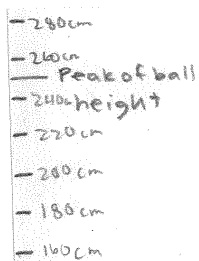 280cm
260cm
Peak of ball
240cm height
220cm
200cm
180cm
160cm